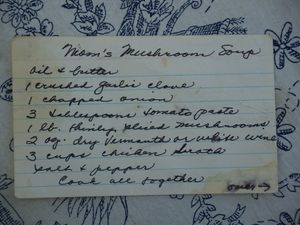 Mom's Mushroom Soup
oil & butter
1 crushed garlic clove
1 chopped onion
3 tablespoons tomato paste
1 lb. thinly sliced mushrooms
2 oz. dry Vermouth or white wine
3 cups chicken broth
salt & pepper
Cook all together
over →